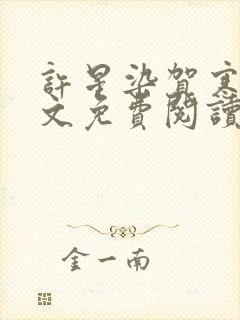 許星染賀寒
文免費閱讀
金一南